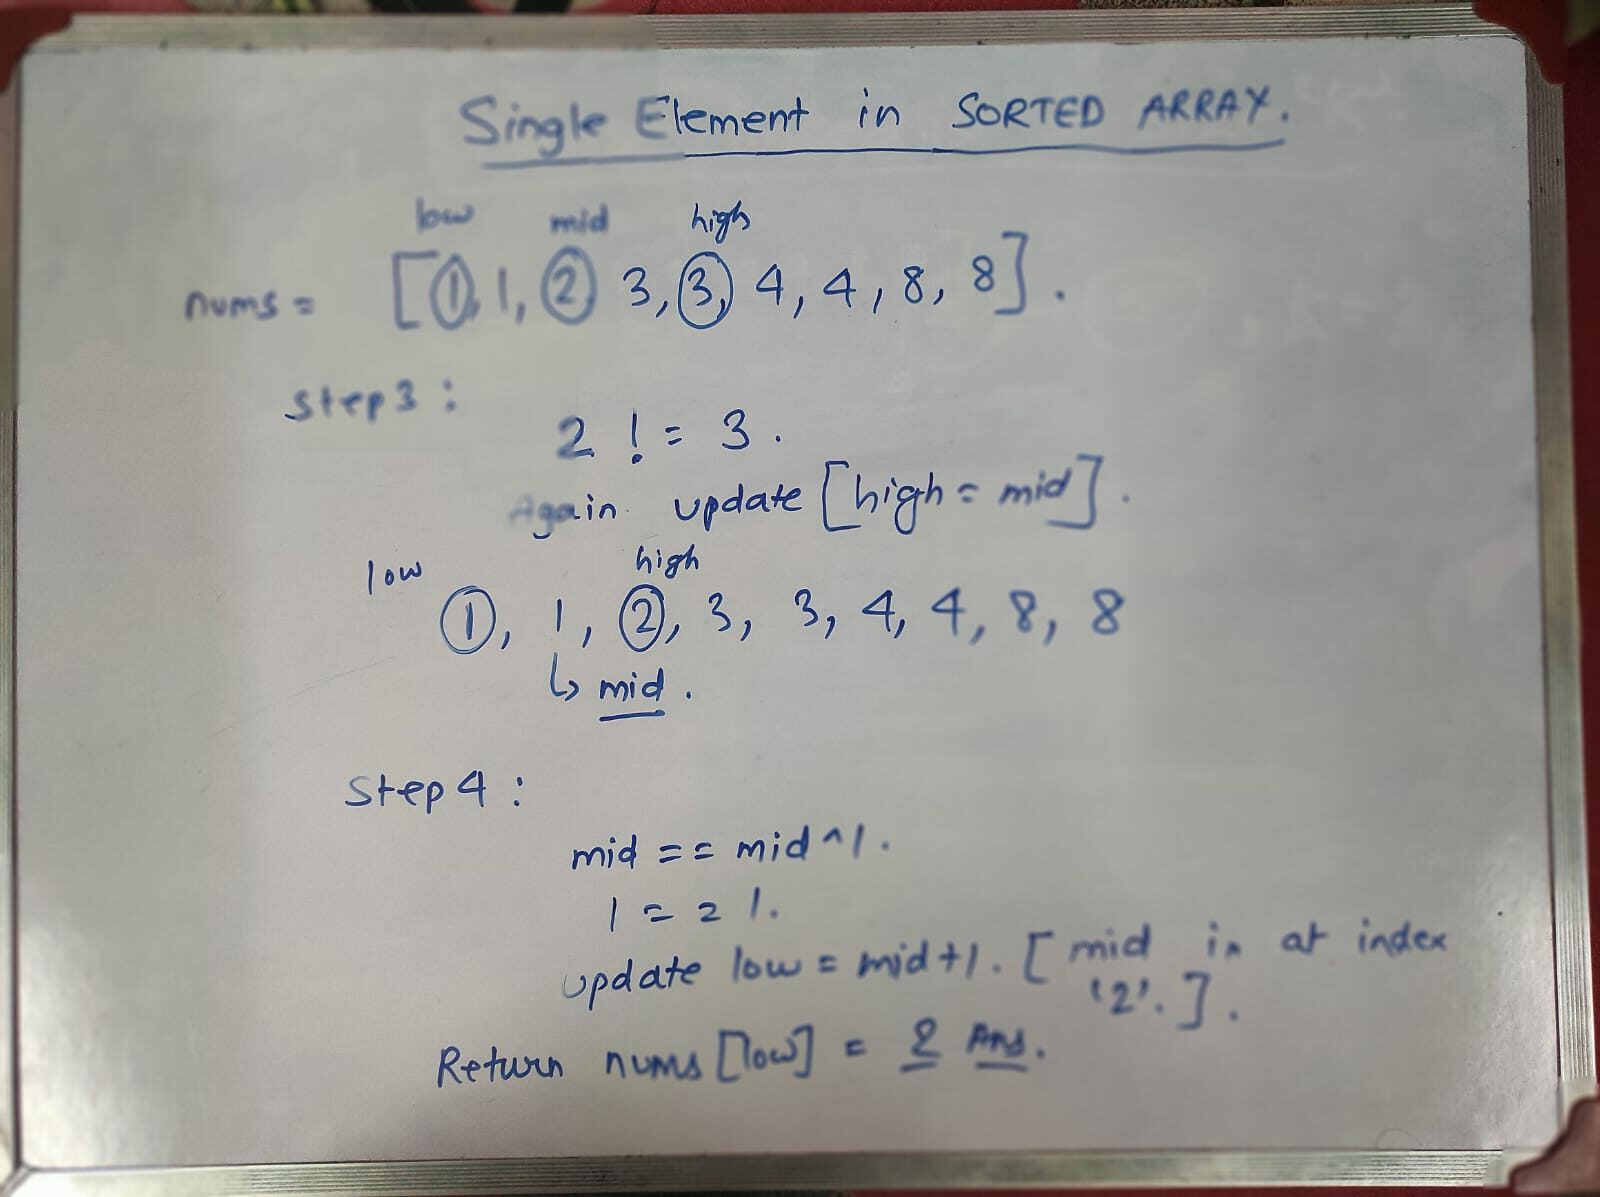 Single Element in SORTED ARRAY.
low mid high
nums = [1, 1, 2, 3, 3, 4, 4, 8, 8].
Step 3 :
2 != 3.
Again update [high = mid].
low high
1, 1, 2, 3, 3, 4, 4, 8, 8
↳ mid.
Step 4 :
mid == mid^1.
1 == 1.
update low = mid+1. [mid in at index
'2'.].
Return nums [low] = 2 Ans.